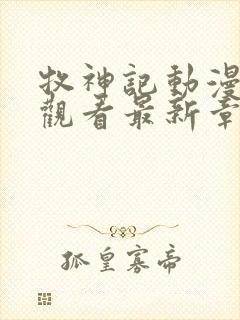 牧神記動漫
觀看最新章
孤皇寡帝